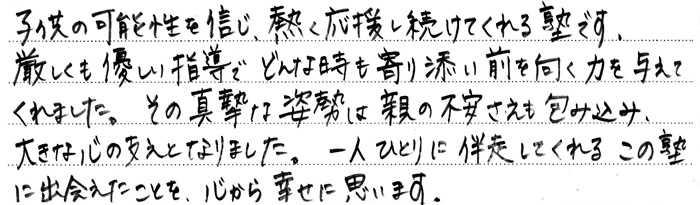 子供の可能性を信じ、熱く応援し続けてくれる塾です。
厳しくも優しい指導で どんな時も寄り添い前を向く力を与えて
くれました。その真摯な姿勢は親の不安さえも包み込み、
大きな心の支えとなりました。一人ひとりに伴走してくれるこの塾
に出会えたことを、心から幸せに思います。